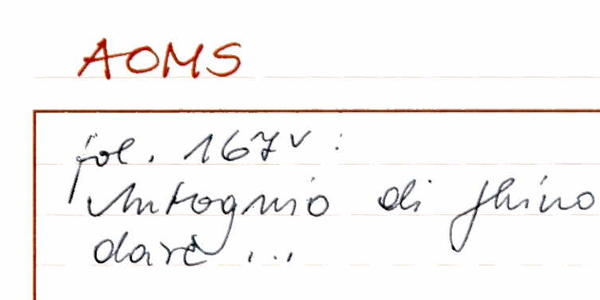 AOMS
fol. 167v:
Antognio di Ghino
dare ...